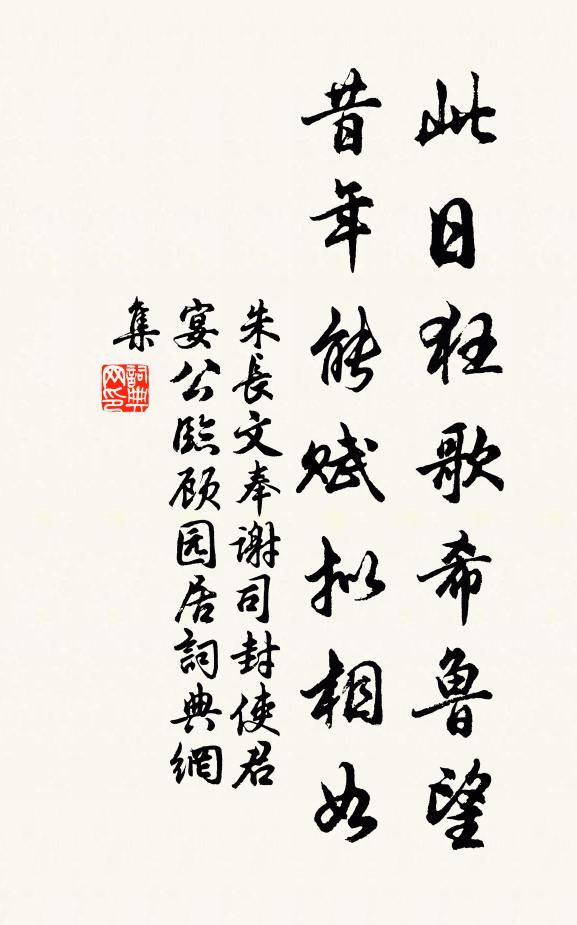 此日狂歌希鲁望
昔年能赋拟相如
朱長文奉谢司封使君
宴公臨顾园居詞典網
集
詞典网印